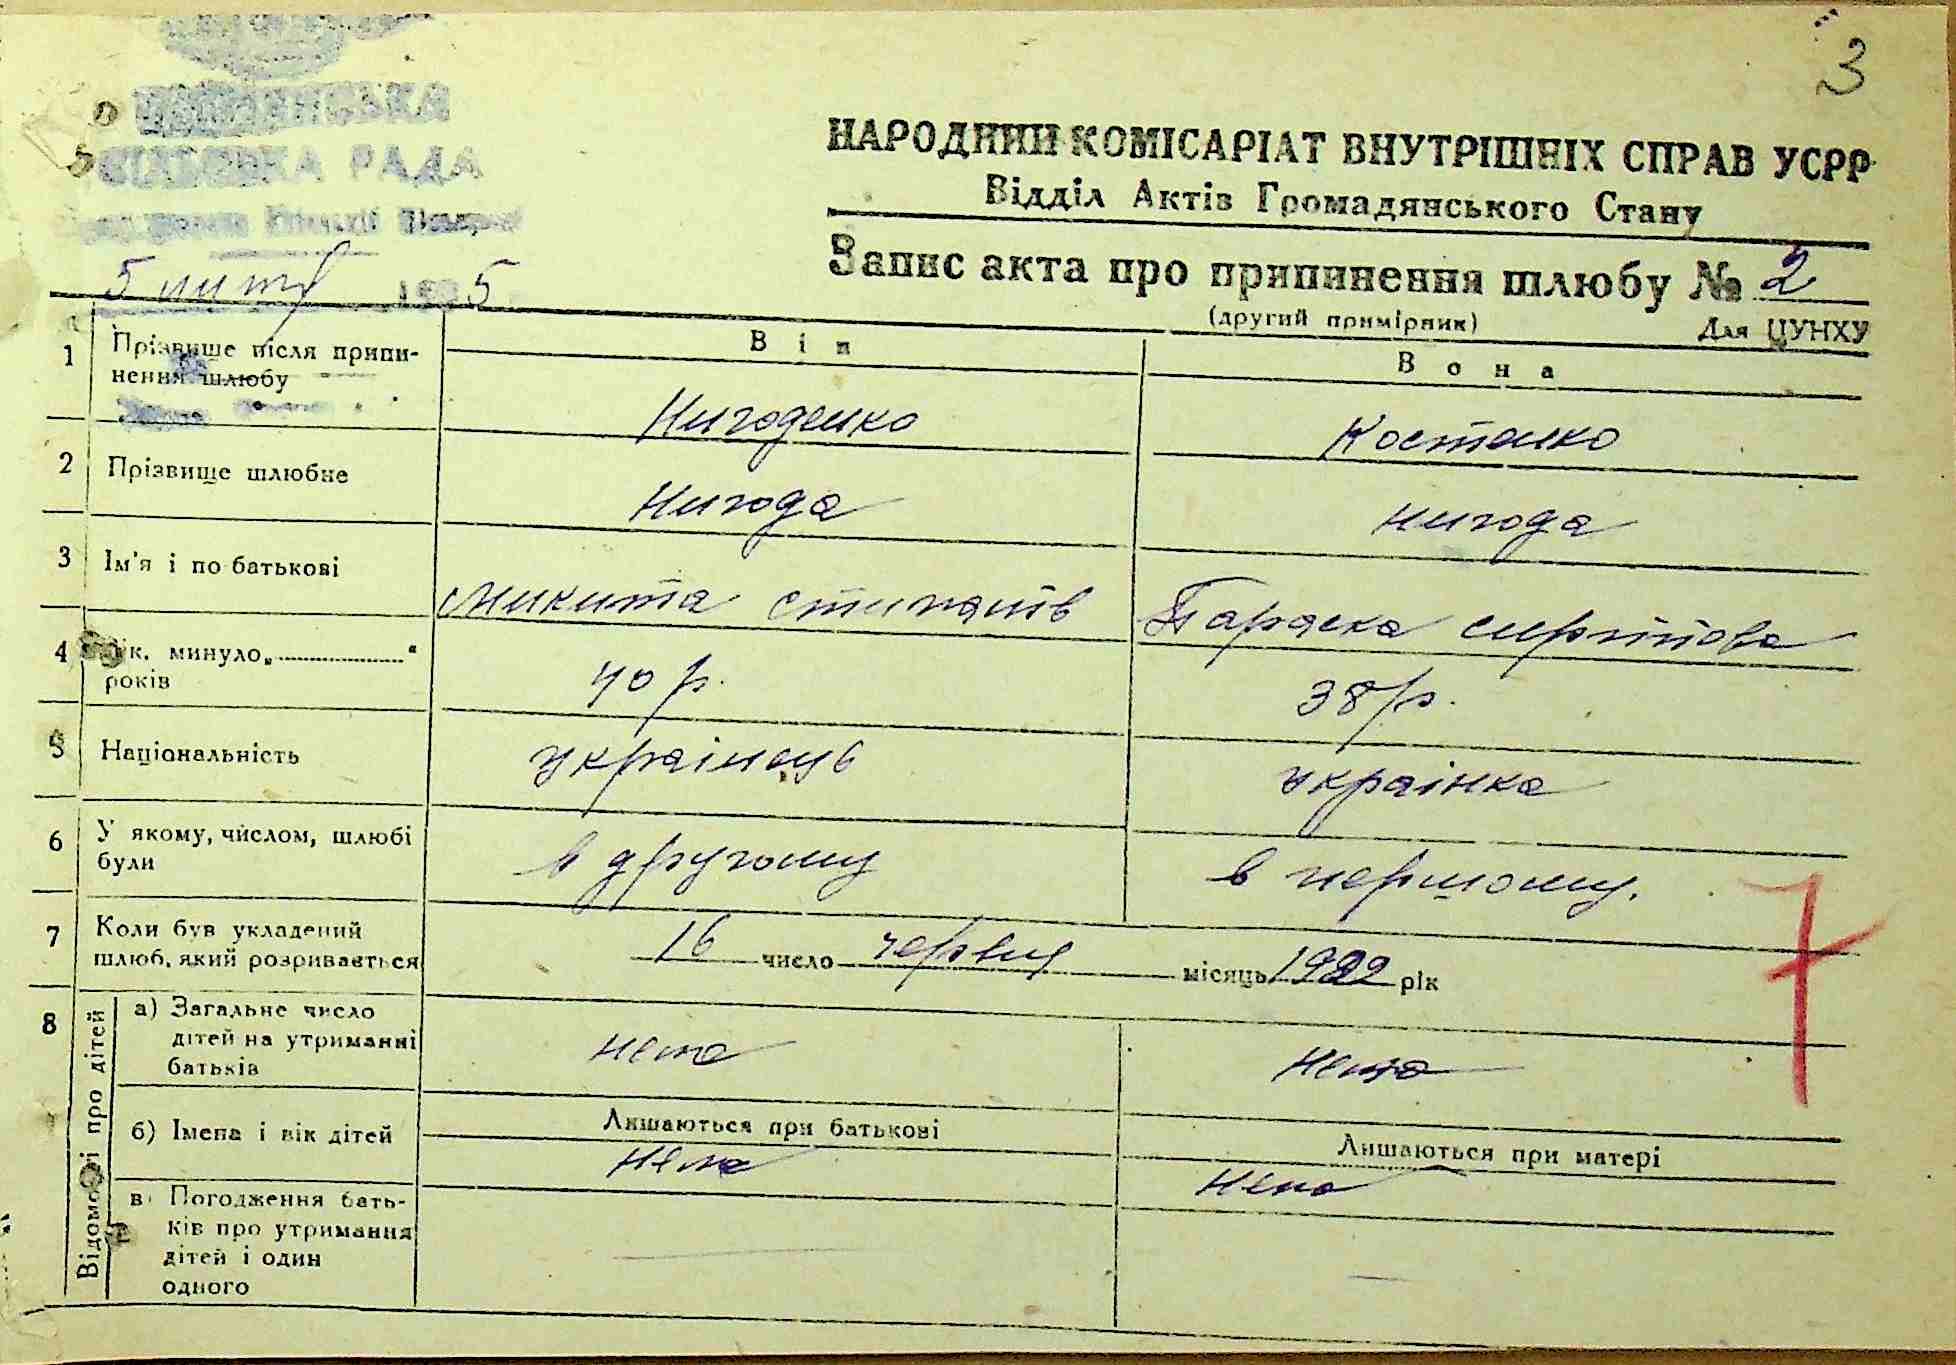 3
РАДА
НАРОДНИЙ КОМІСАРІАТ ВНУТРІШНІХ СПРАВ УСРР
Відділ Актів Громадянського Стану
Запис акта про припинення шлюбу № 2
(другий примірник) Для ЦУНХУ
5 1935
Він Вона
1 Прізвище після припи-
нення шлюбу
Нигоденко Костенко
2 Прізвище шлюбне
Нигода Нигода
3 Ім'я і по батькові
Микита Параска
4 Вік. минуло „ “
років
40 р. 38 р.
5 Національність
українець українка
6 У якому, числом, шлюбі
були
в другому в першому.
7 Коли був укладений
шлюб, який розривається
16 число червня місяць 1922 рік
8 Відомості про дітей
а) Загальне число
дітей на утриманні
батьків
нема нема
б) Імена і вік дітей
Лишаються при батькові Лишаються при матері
нема нема
в) Погодження бать-
ків про утримання
дітей і один
одного